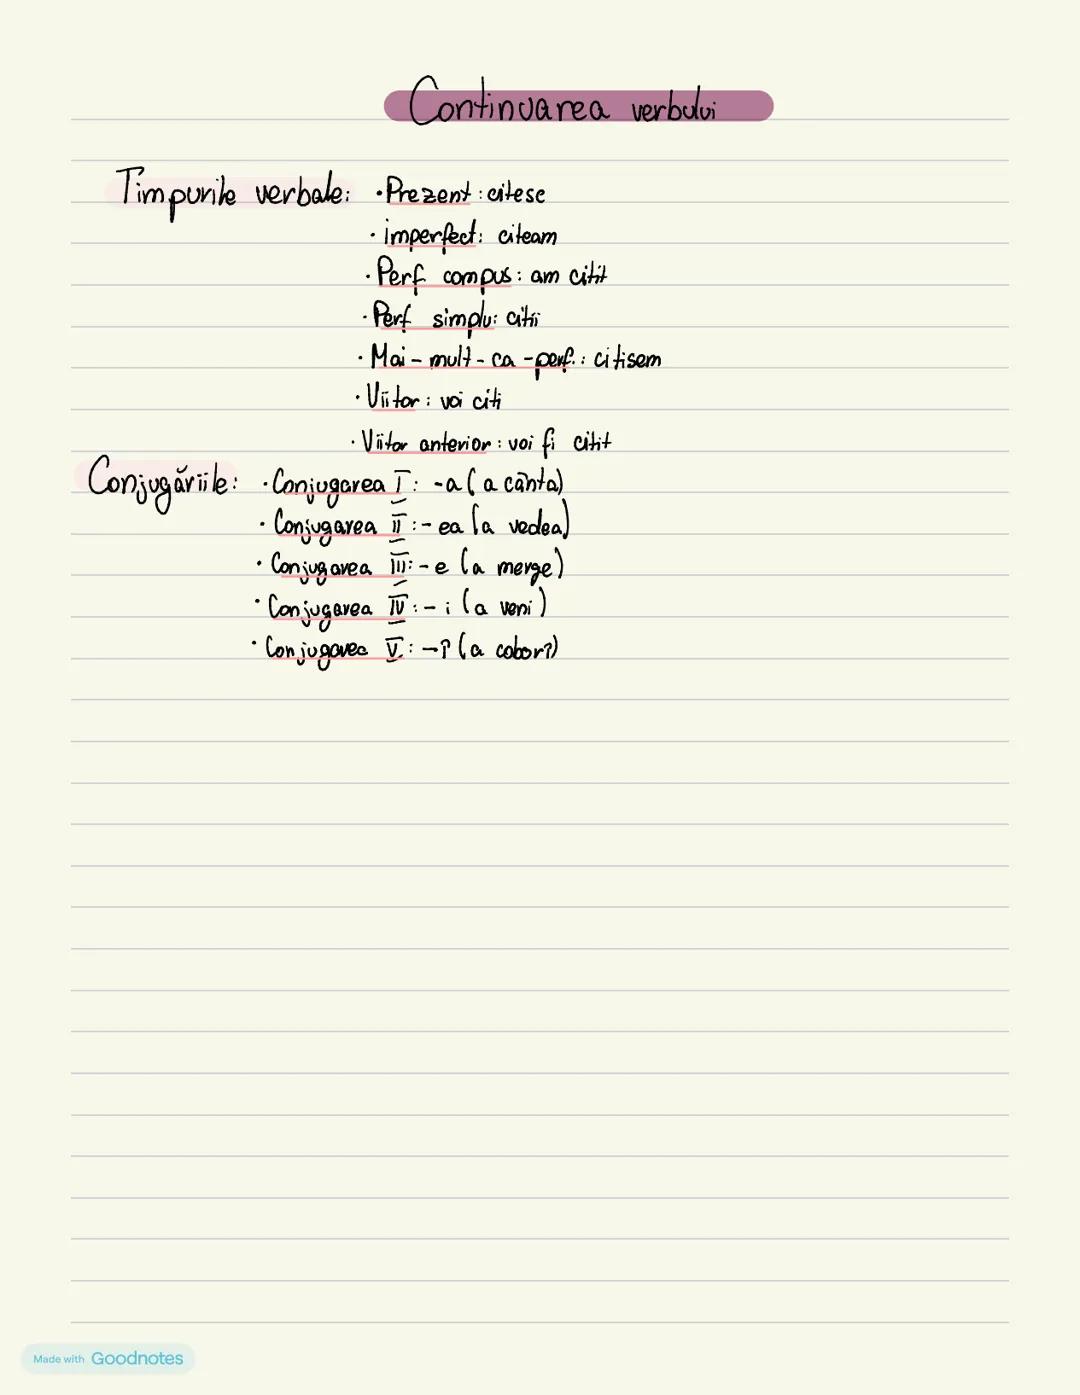 Continuarea verbului
Timpurile verbale: • Prezent: citesc
• imperfect: citeam
• Perf compus: am citit
• Perf simplu: citii
• Mai-mult-ca-perf.: citisem
• Viitor: voi citi
• Viitor anterior: voi fi citit
Conjugăriile: • Conjugarea I: -a (a cânta)
• Conjugarea II: -ea (a vedea)
• Conjugarea III: -e (a merge)
• Conjugarea IV: -i (a veni)
• Conjugarea V: -î (a coborî)
Made with Goodnotes